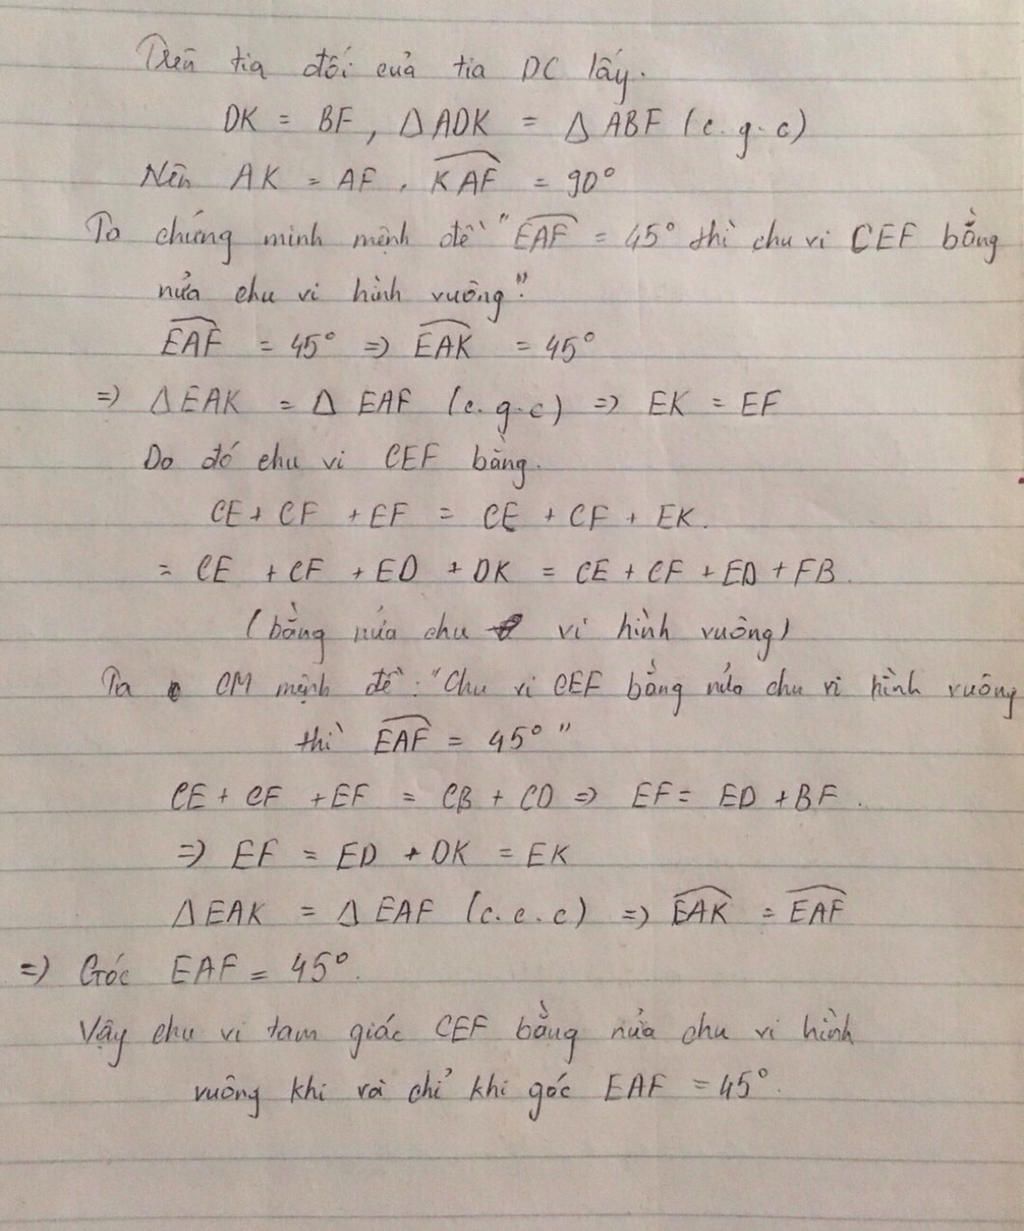 Trên tia đối của tia DC lấy.
DK = BF, △ADK = △ABF (c.g.c)
Nên AK = AF, \widehat{KAF} = 90°
Ta chứng minh mệnh đề "\widehat{EAF} = 45° thì chu vi CEF bằng
nửa chu vi hình vuông".
\widehat{EAF} = 45° => \widehat{EAK} = 45°
=> △EAK = △EAF (c.g.c) => EK = EF
Do đó chu vi CEF bằng.
CE + CF + EF = CE + CF + EK.
= CE + CF + ED + DK = CE + CF + ED + FB.
(bằng nửa chu vi hình vuông)
Ta CM mệnh đề: "Chu vi CEF bằng nửa chu vi hình vuông
thì \widehat{EAF} = 45°"
CE + CF + EF = CB + CD => EF = ED + BF.
=> EF = ED + DK = EK
△EAK = △EAF (c.c.c) => \widehat{EAK} = \widehat{EAF}
=> Góc EAF = 45°.
Vậy chu vi tam giác CEF bằng nửa chu vi hình
vuông khi và chỉ khi góc EAF = 45°.